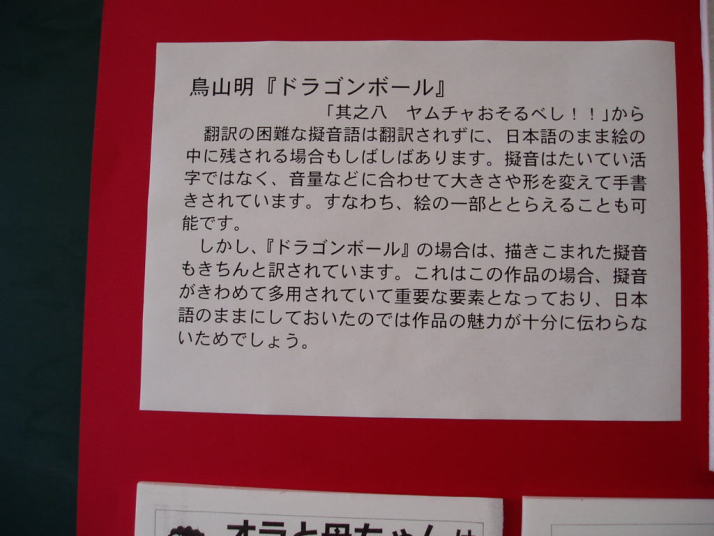 鳥山明『ドラゴンボール』
「其之八　ヤムチャおそるべし！！」から
　翻訳の困難な擬音語は翻訳されずに、日本語のまま絵の
中に残される場合もしばしばあります。擬音はたいてい活
字ではなく、音量などに合わせて大きさや形を変えて手書
きされています。すなわち、絵の一部ととらえることも可
能です。
　しかし、『ドラゴンボール』の場合は、描きこまれた擬音
もきちんと訳されています。これはこの作品の場合、擬音
がきわめて多用されていて重要な要素となっており、日本
語のままにしておいたのでは作品の魅力が十分に伝わらな
いためでしょう。
オラと母ちゃんは